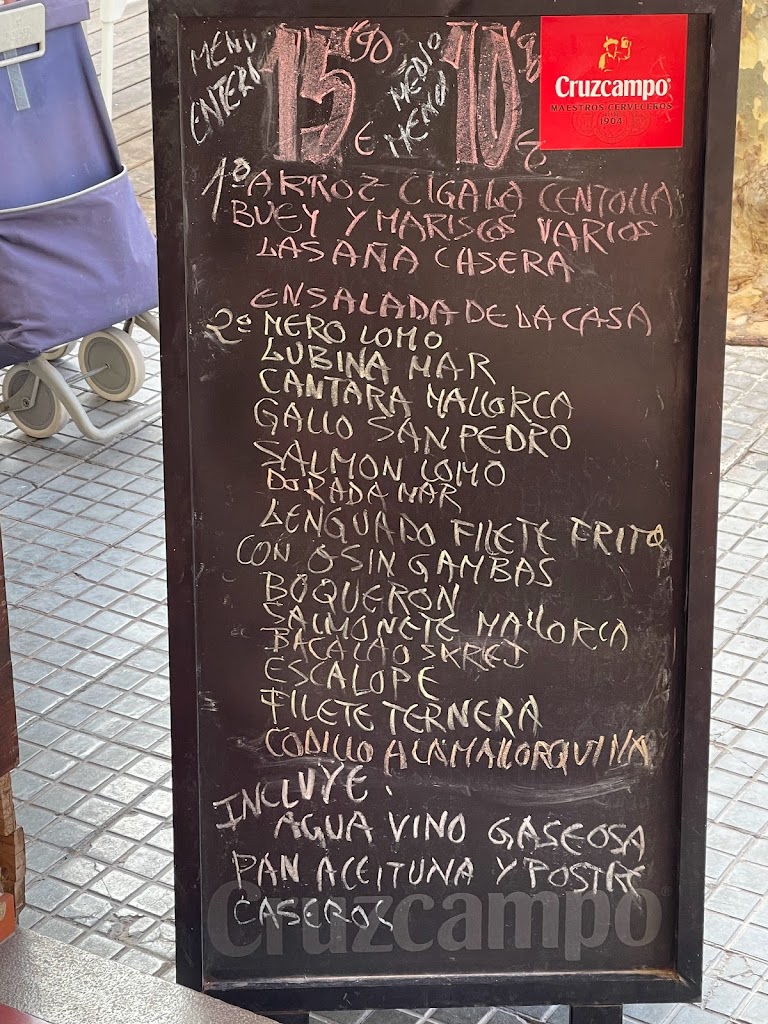 MENU ENTERO 15'90 € MEDIO MENU 10'90 €
Cruzcampo
MAESTROS CERVECEROS
1904
1º ARROZ CIGALA CENTOLLA
BUEY Y MARISCOS VARIOS
LASAÑA CASERA
ENSALADA DE LA CASA
2º MERO LOMO
LUBINA MAR
CANTARA MALLORCA
GALLO SAN PEDRO
SALMON LOMO
DORADA MAR
LENGUADO FILETE FRITO
CON O SIN GAMBAS
BOQUERON
SALMONETE MALLORCA
BACALAO SKREI
ESCALOPE
FILETE TERNERA
CODILLO A LA MALLORQUINA
INCLUYE:
AGUA VINO GASEOSA
PAN ACEITUNA Y POSTRE
CASEROS
Cruzcampo